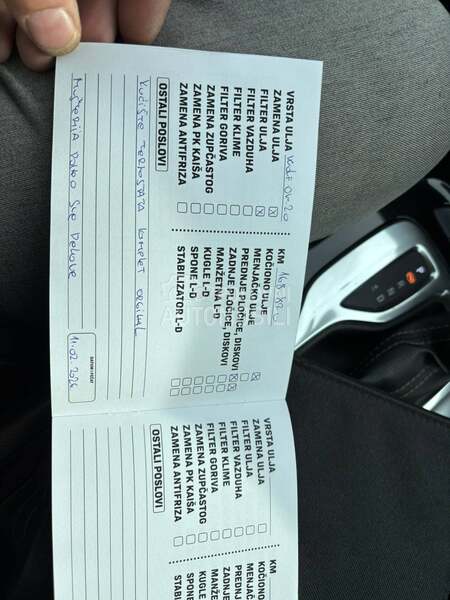 VRSTA ULJA
ZAMENA ULJA
FILTER ULJA
FILTER VAZDUHA
FILTER KLIME
FILTER GORIVA
ZAMENA ZUPČASTOG
ZAMENA PK KAIŠA
ZAMENA ANTIFRIZA
KM
KOČIONO ULJE
MENJAČKO ULJE
PREDNJE PLOČICE, DISKOVI
ZADNJE PLOČICE, DISKOVI
MANŽETNA L-D
KUGLE L-D
SPONE L-D
STABILIZATOR L-D
OSTALI POSLOVI
KUĆIŠTE TERMOSTATA KOMPLET ORGINAL
MUŠTERIJA DONEO SVE DELOVE
11.02.2026
DATUM I PEČAT
VRSTA ULJA
ZAMENA ULJA
FILTER ULJA
FILTER VAZDUHA
FILTER KLIME
FILTER GORIVA
ZAMENA ZUPČASTOG
ZAMENA PK KAIŠA
ZAMENA ANTIFRIZA
KM
KOČIONO
MENJAČ
PREDNJ
ZADNJE
MANŽE
KUGLE
SPONE
STABIL
OSTALI POSLOVI
P
R
N
D